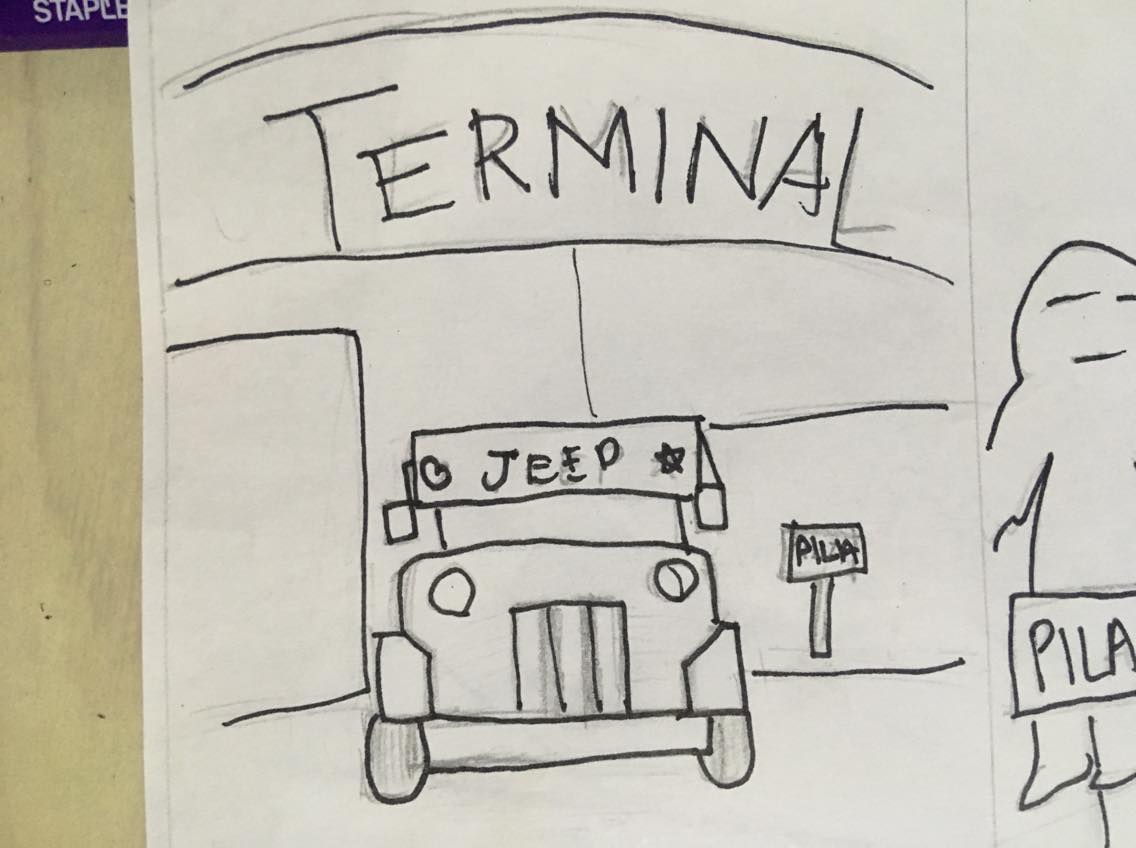 STAPLE
TERMINAL
JEEP
PILA
PILA